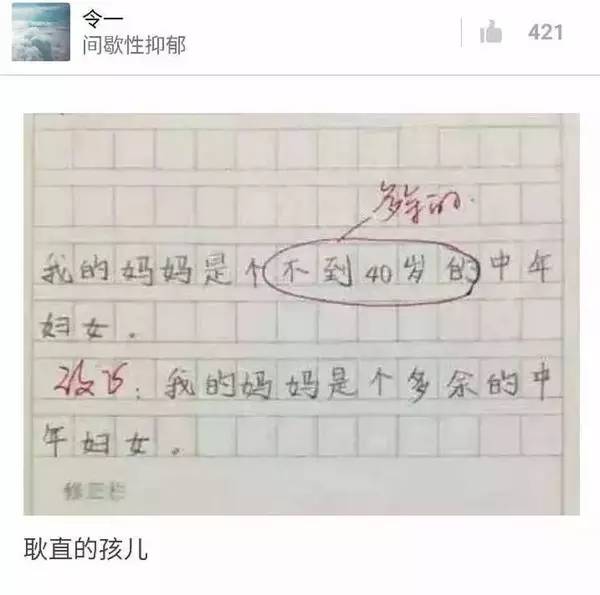 令一
间歇性抑郁
421
多余的.
我的妈妈是个不到40岁的中年
妇女。
改正：我的妈妈是个多余的中
年妇女。
修正栏
耿直的孩儿